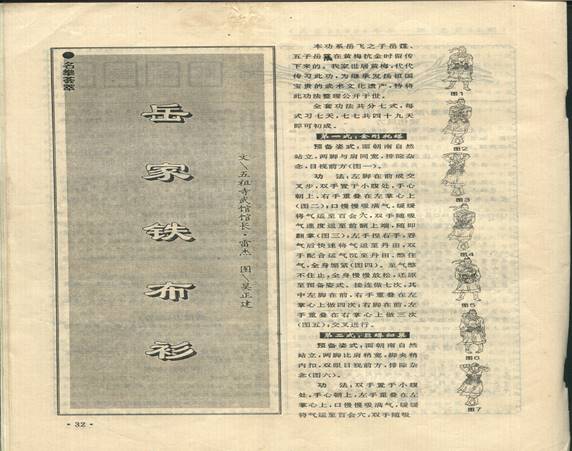 ●名拳荟萃
岳家铁布衫
文\五祖寺武馆馆长·雷杰 图\吴正建
本功系岳飞之子岳霆、
五子岳在黄梅抗金时留传
下来的。我家世居黄梅,代代
传习此功,为继承发扬祖国
宝贵的武术文化遗产,特将
此功法整理公开于世。
全套功法共分七式,每
式习七天,七七共四十九天
即可初成。
第一式:金刚托塔
预备姿式:面朝南自然
站立,两脚与肩同宽,排除杂
念,目视前方(图一)。
功 法:左脚在前成交
叉步,双手置于小腹处,手心
朝上,右手重叠在左掌心上
(图二);口慢慢吸满气,缓缓
将气运至百会穴,双手随吸
气速度运至前额上端,随即
翻掌(图三);左手捏右手,吞
气后快速将气运至丹田,双
手配合运气沉至丹田,憋住
气,全身绷紧(图四)。至气憋
不住止,全身慢慢放松,还原
至预备姿式。接连做七次,其
中左脚在前,右手重叠在左
掌心上做四次;右脚在前,左
手重叠在右掌心上做三次
(图五),交叉进行。
第二式:
预备姿式:面朝南自然
站立,两脚比肩稍宽,脚尖稍
内扣,双眼目视前方,排除杂
念(图六)。
功 法:双手置于小腹
处,手心朝上,右手重叠在左
掌心上,口慢慢吸满气,缓缓
将气运至百会穴,双手随吸
图1
图2
图3
图4
图5
图6
图7
·32·